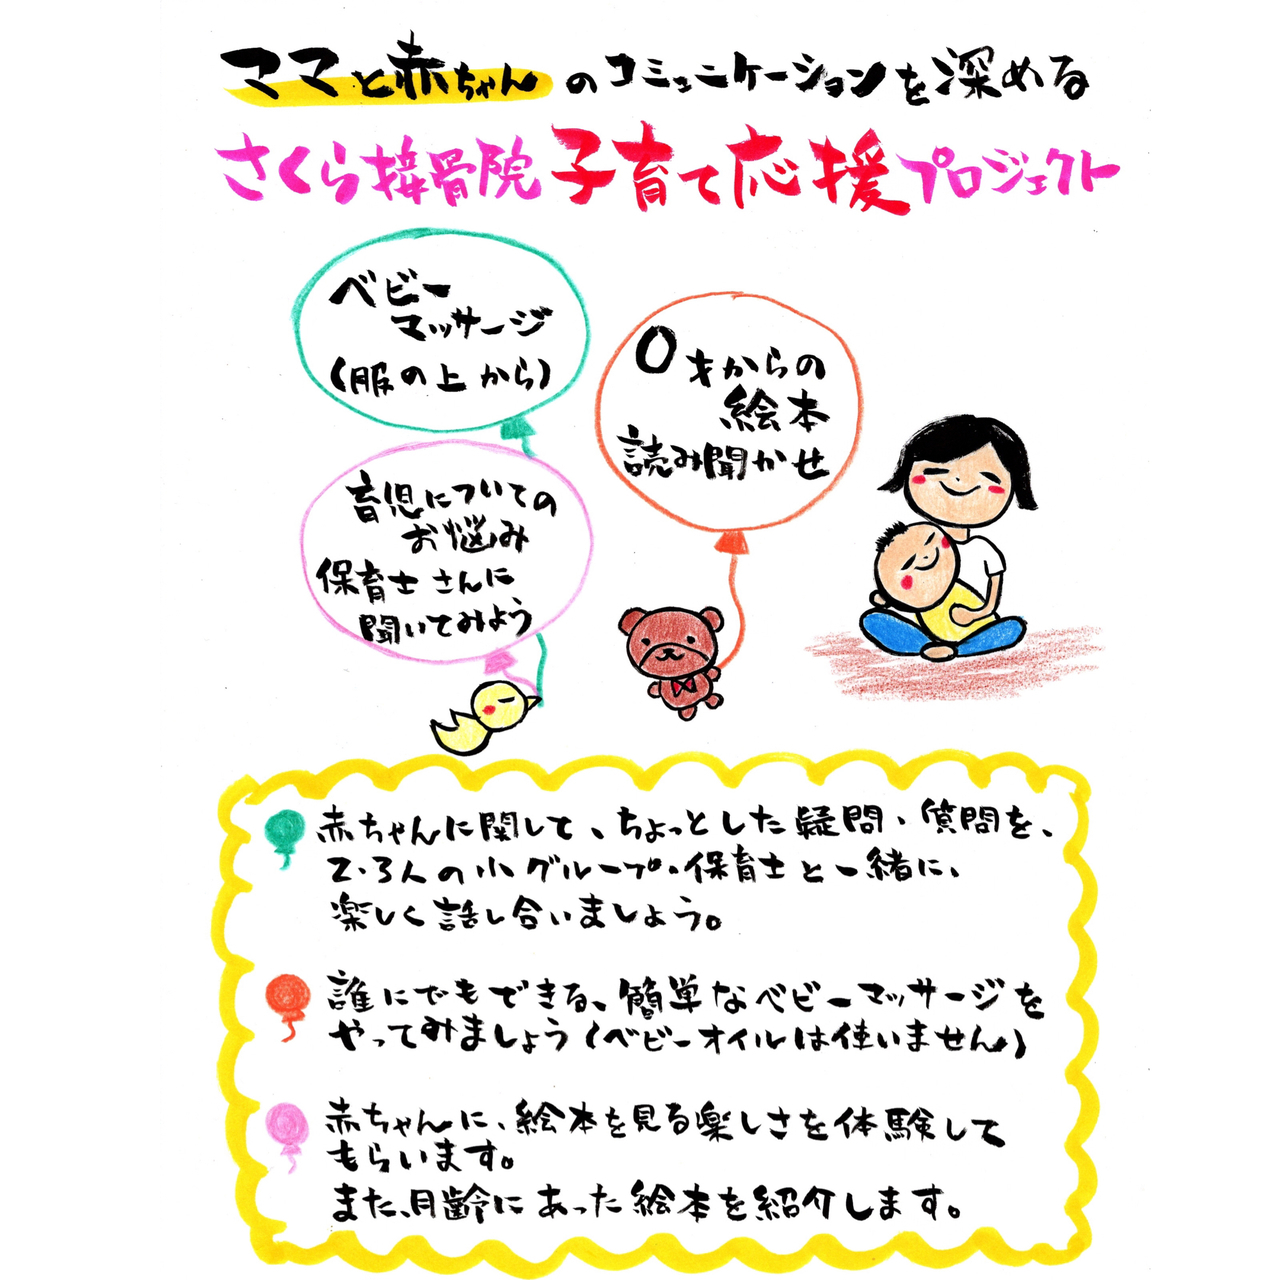 ママと赤ちゃんのコミュニケーションを深める
さくら接骨院子育て応援プロジェクト
ベビー
マッサージ
(服の上から)
0才からの
絵本
読み聞かせ
育児についての
お悩み
保育士さんに
聞いてみよう
赤ちゃんに関して、ちょっとした疑問・質問を、
2・3人の小グループ・保育士と一緒に、
楽しく話し合いましょう。
誰にでもできる、簡単なベビーマッサージを
やってみましょう(ベビーオイルは使いません)
赤ちゃんに、絵本を見る楽しさを体験して
もらいます。
また、月齢にあった絵本を紹介します。